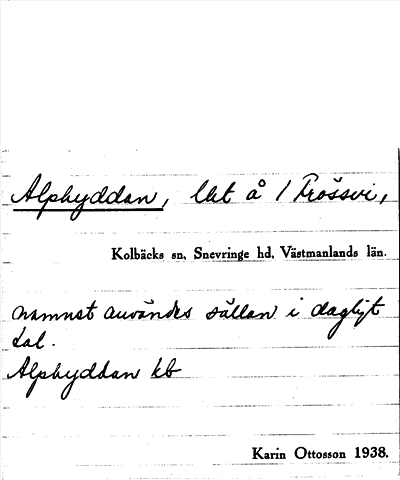 Alphyddan, lht å 1 Frössvi,
Kolbäcks sn, Snevringe hd, Västmanlands län.
namnet användes sällan i dagligt
tal.
Alphyddan kb
Karin Ottosson 1938.